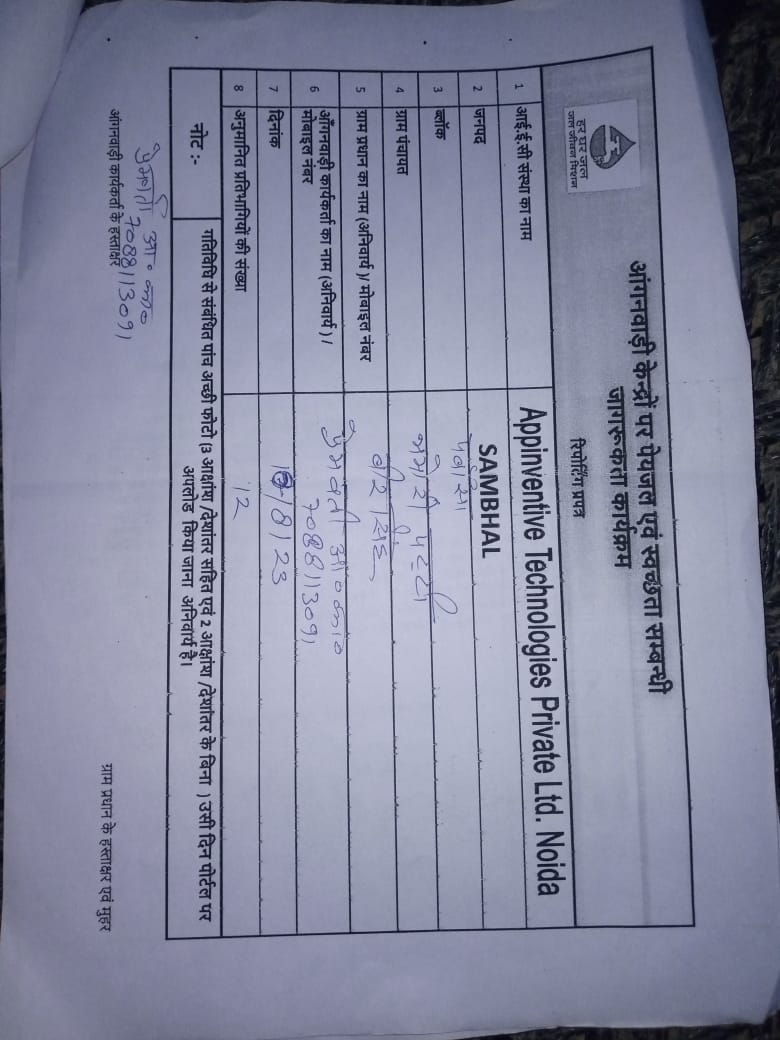 हर घर जल
जल जीवन मिशन
आंगनवाड़ी केन्द्रों पर पेयजल एवं स्वच्छता सम्बन्धी
जागरूकता कार्यक्रम
रिपोर्टिंग प्रपत्र
1 आई.ई.सी संस्था का नाम Appinventive Technologies Private Ltd. Noida
2 जनपद SAMBHAL
3 ब्लॉक पवासा
4 ग्राम पंचायत
5 ग्राम प्रधान का नाम (अनिवार्य )/ मोबाइल नंबर
6 आँगनवाड़ी कार्यकर्ता का नाम (अनिवार्य ) / प्रेमवती आ० का०
मोबाइल नंबर 7088113091
7 दिनांक /8/23
8 अनुमानित प्रतिभागियों की संख्या 12
नोट :- गतिविधि से संबंधित पांच अच्छी फोटो (3 आक्षांश /देशांतर सहित एवं 2 आक्षांश /देशांतर के बिना ) उसी दिन पोर्टल पर
अपलोड किया जाना अनिवार्य है।
प्रेमवती आ० का०
7088113091
आंगनवाड़ी कार्यकर्ता के हस्ताक्षर ग्राम प्रधान के हस्ताक्षर एवं मुहर